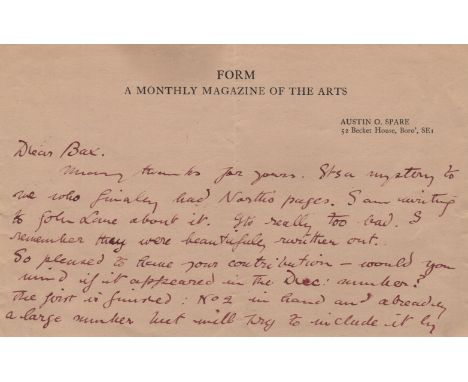 FORM
A MONTHLY MAGAZINE OF THE ARTS
AUSTIN O. SPARE
52 Becket House, Boro', SE1
Dear Bax.
Many thanks for yours. Its a mystery to
me who finaley had pages. I am writing
to John Lane about it. Its really too bad. I
remember they were beautifuley written out.
So pleased to have your contribution – would you
mind if it appeared in the Dec: number?
the first is finished: No 2 in hand and already
a large number but will try to include it by